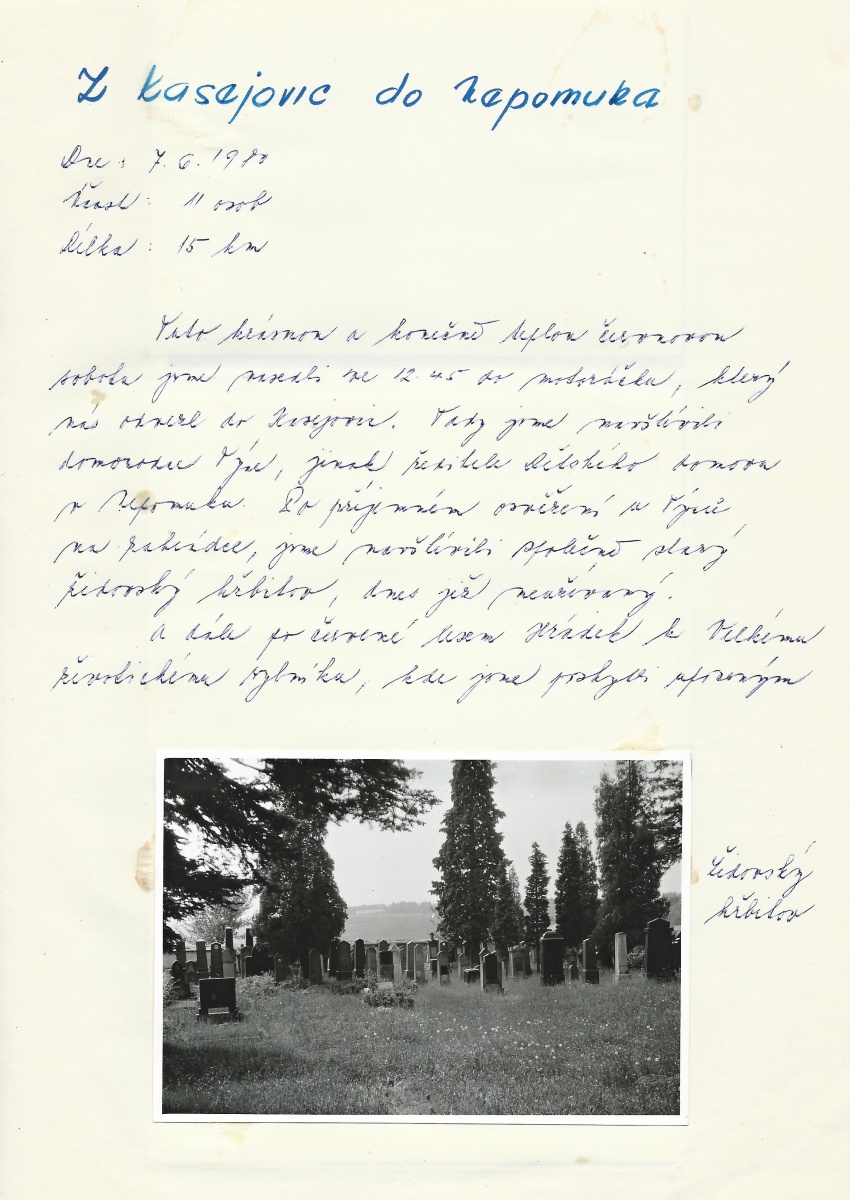 Z Kasejovic do Nepomuka
Dne: 7. 6. 1980
Účast: 11 osob
Délka: 15 km
Tuto krásnou a konečně teplou červnovou
sobotu jsme nasedli ve 12.45 do motoráčku, který
nás odvezl do Kasejovic. Tady jsme navštívili
domorodce Týce, jinak ředitele Dětského domova
v Nepomuku. Po příjemném osvěžení u Týců
na zahrádce, jsme navštívili společně starý
židovský hřbitov, dnes již neužívaný.
A dále po červené lesem Hrádek k Velkému
životickému rybníku, kde jsme poskytli upoceným
Židovský
hřbitov